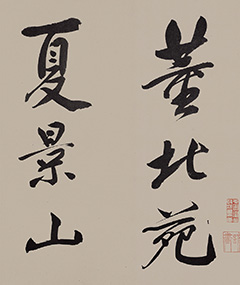 董北苑
夏景山